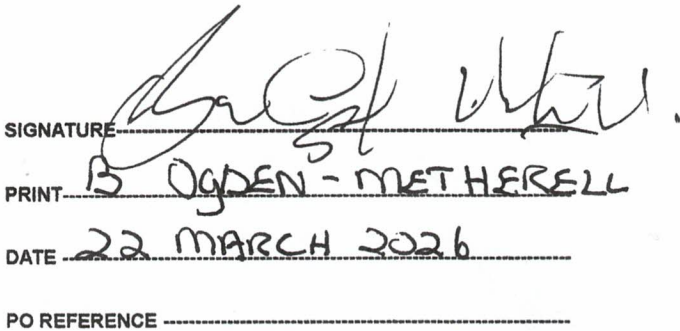 SIGNATURE
PRINT B OgDEN - METHERELL
DATE 22 MARCH 2026
PO REFERENCE